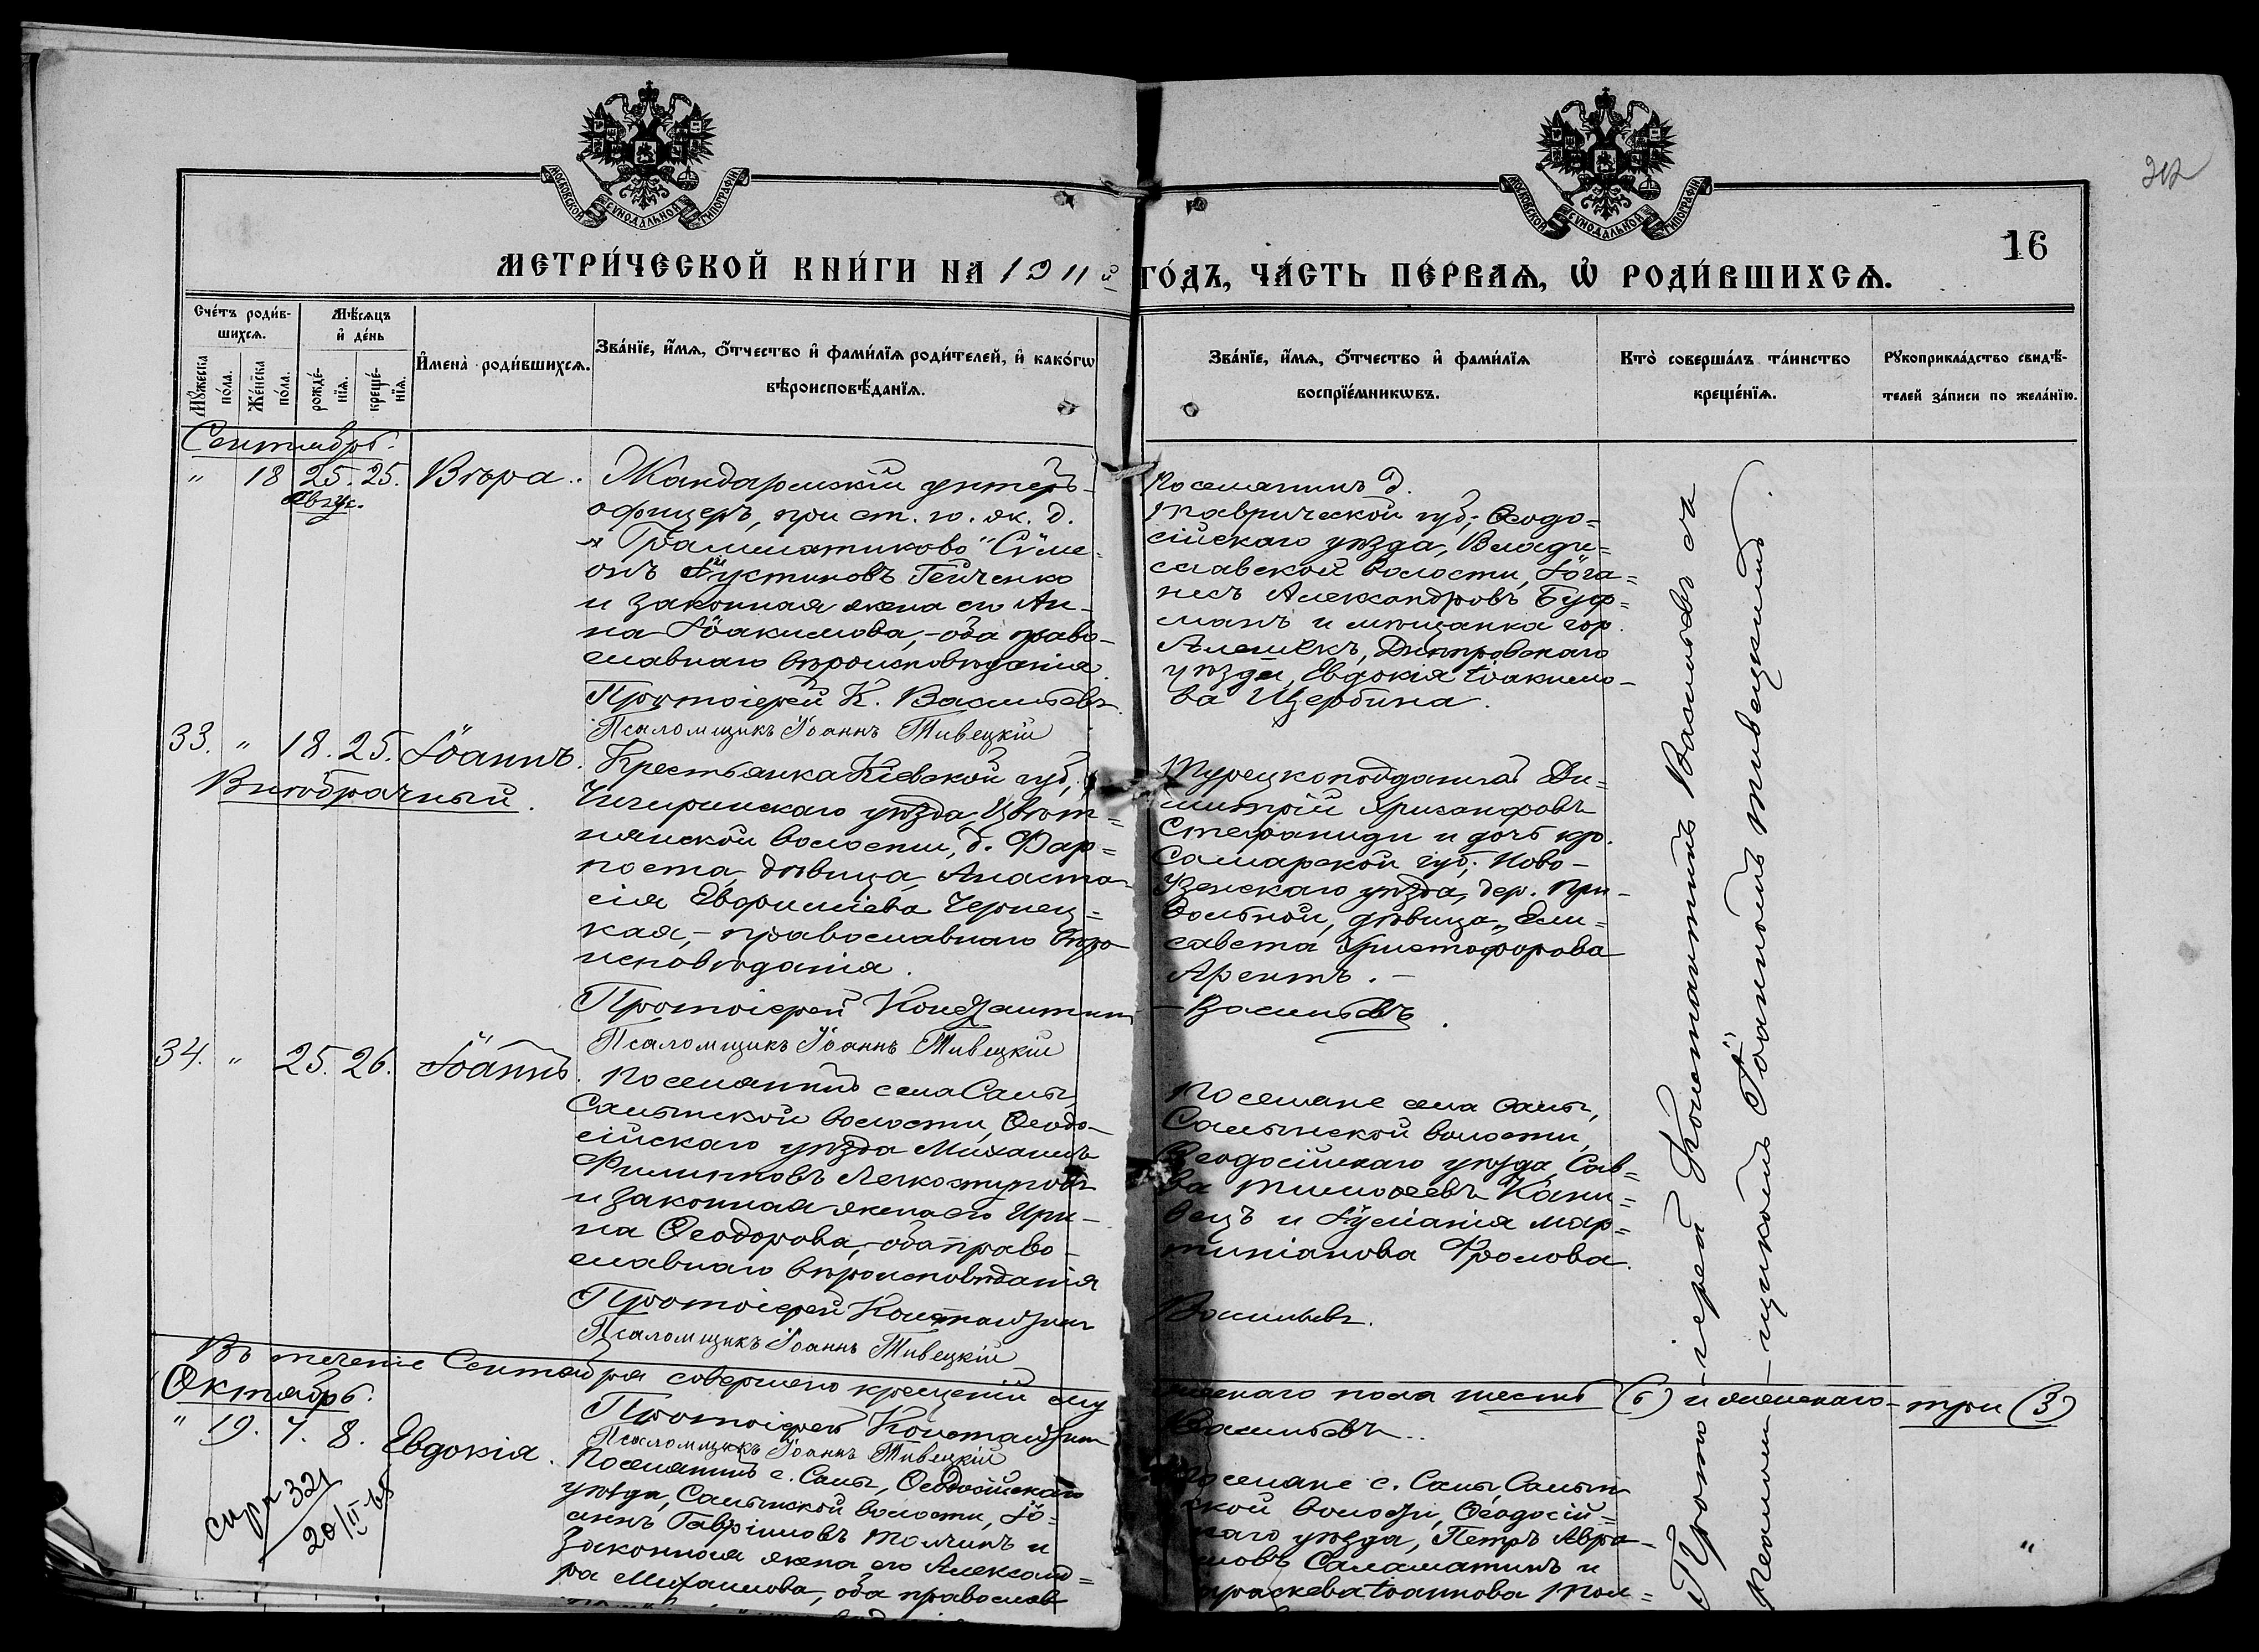 МОСКОВСКОЙ СѴНОДАЛЬНОЙ ТИПОГРАФІИ
МОСКОВСКОЙ СѴНОДАЛЬНОЙ ТИПОГРАФІИ
16
МЕТРИ́ЧЕСКОЙ КНИ́ГИ НА 1911й ГО́ДЪ, ЧА́СТЬ ПЕ́РВАѦ, Ѡ҆ РОДИ́ВШИХСѦ.
Сче́тъ роди́в-
шихсѧ.
Мꙋ́жеска по́ла.
Же́нска по́ла.
Мѣ́сѧцъ
и҆ де́нь
рожде́-нїѧ.
креще́-нїѧ.
И҆мена̀ роди́вшихсѧ.
Зва́нїе, и҆́мѧ, ѻ҆́тчество и҆ фами́лїѧ роди́телей, и҆ како́гѡ
вѣроисповѣ́данїѧ.
Зва́нїе, и҆́мѧ, ѻ҆́тчество и҆ фами́лїѧ
воспрїе́мникѡвъ.
Кто̀ соверша́лъ та́инство
креще́нїѧ.
Рꙋкоприкла́дство свидѣ́-
телей за́писи по жела́нїю.
Сентябрь.
" 18 25. 25. Вѣра.
Авгус.
Жандармскій унтеръ-
офицеръ, при ст. ю. ж. д.
"Грамматиково" Сѵме-
онъ Іустиновъ Гейченко
и законная жена его Ан-
на Іоакимова,- оба право-
славнаго вѣроисповѣданія.
Протоіерей К. Васильевъ.
Псаломщикъ Іоаннъ Тивецкій
Поселянинъ д.
Таврической губ., Ѳеодо=
сійскаго уѣзда, Влади=
славской волости, Іога=
несъ Александровъ Буф=
манъ и мѣщанка гор.
Алешекъ, Днѣпровскаго
уѣзда, Евдокія Іоакимо-
ва Щербина.
33. " 18. 25. Іоаннъ.
Внѣбрачный.
Крестьянка Кіевской губ.,
Чигиринскаго уѣзда, Цвѣт=
нянской волости, д. Фар=
поста, дѣвица, Анаста-
сія Евфиміева Чернец=
кая,- православнаго вѣро-
исповѣданія.
Протоіерей Константинъ Васильевъ.
Псаломщикъ Іоаннъ Тивецкій
Турецкоподданный Ди=
митрій Хрисанфовъ
Стефаниди и дочь кр.
Самарской губ., Ново-
Узенскаго уѣзда, дер. При-
вольной, дѣвица, Ели=
савета Христофорова
Арентъ.-
34. " 25. 26. Іоаннъ.
Поселянинъ села Салы,
Салынской волости, Ѳеодо-
сійскаго уѣзда Михаилъ
Филипповъ Легкоступовъ
и законная жена его Ири-
на Ѳеодорова,- оба право-
славнаго вѣроисповѣданія
Протоіерей Константинъ Васильевъ.
Псаломщикъ Іоаннъ Тивецкій
Поселяне села Салы,
Салынской волости,
Ѳеодосійскаго уѣзда, Сав=
ва Тимоѳеевъ Кани=
вецъ и Іуліанія Мар=
тиніанова Фролова.
Въ теченіе Сентября совершено крещеній мужескаго пола шесть (6) и женскаго - три (3)
Протоіерей Константинъ Васильевъ.
Псаломщикъ Іоаннъ Тивецкій
Октябрь.
" 19. 7. 8. Евдокія.
321
20/II 65
Поселянинъ с. Салы, Ѳеодосійскаго
уѣзда, Салынской волости, Іо=
аннъ Гавріиловъ Толчинъ и
законная жена его Александ=
ра Михаилова, оба православ
Поселяне с. Салы, Салын
ской волости, Ѳеодосій=
скаго уѣзда, Петръ Авра-
мовъ Саламатинъ и
Параскева Іоаннова Тол=
Протоіерей Константинъ Васильевъ съ
псаломщикомъ Іоанномъ Тивецкимъ.
"